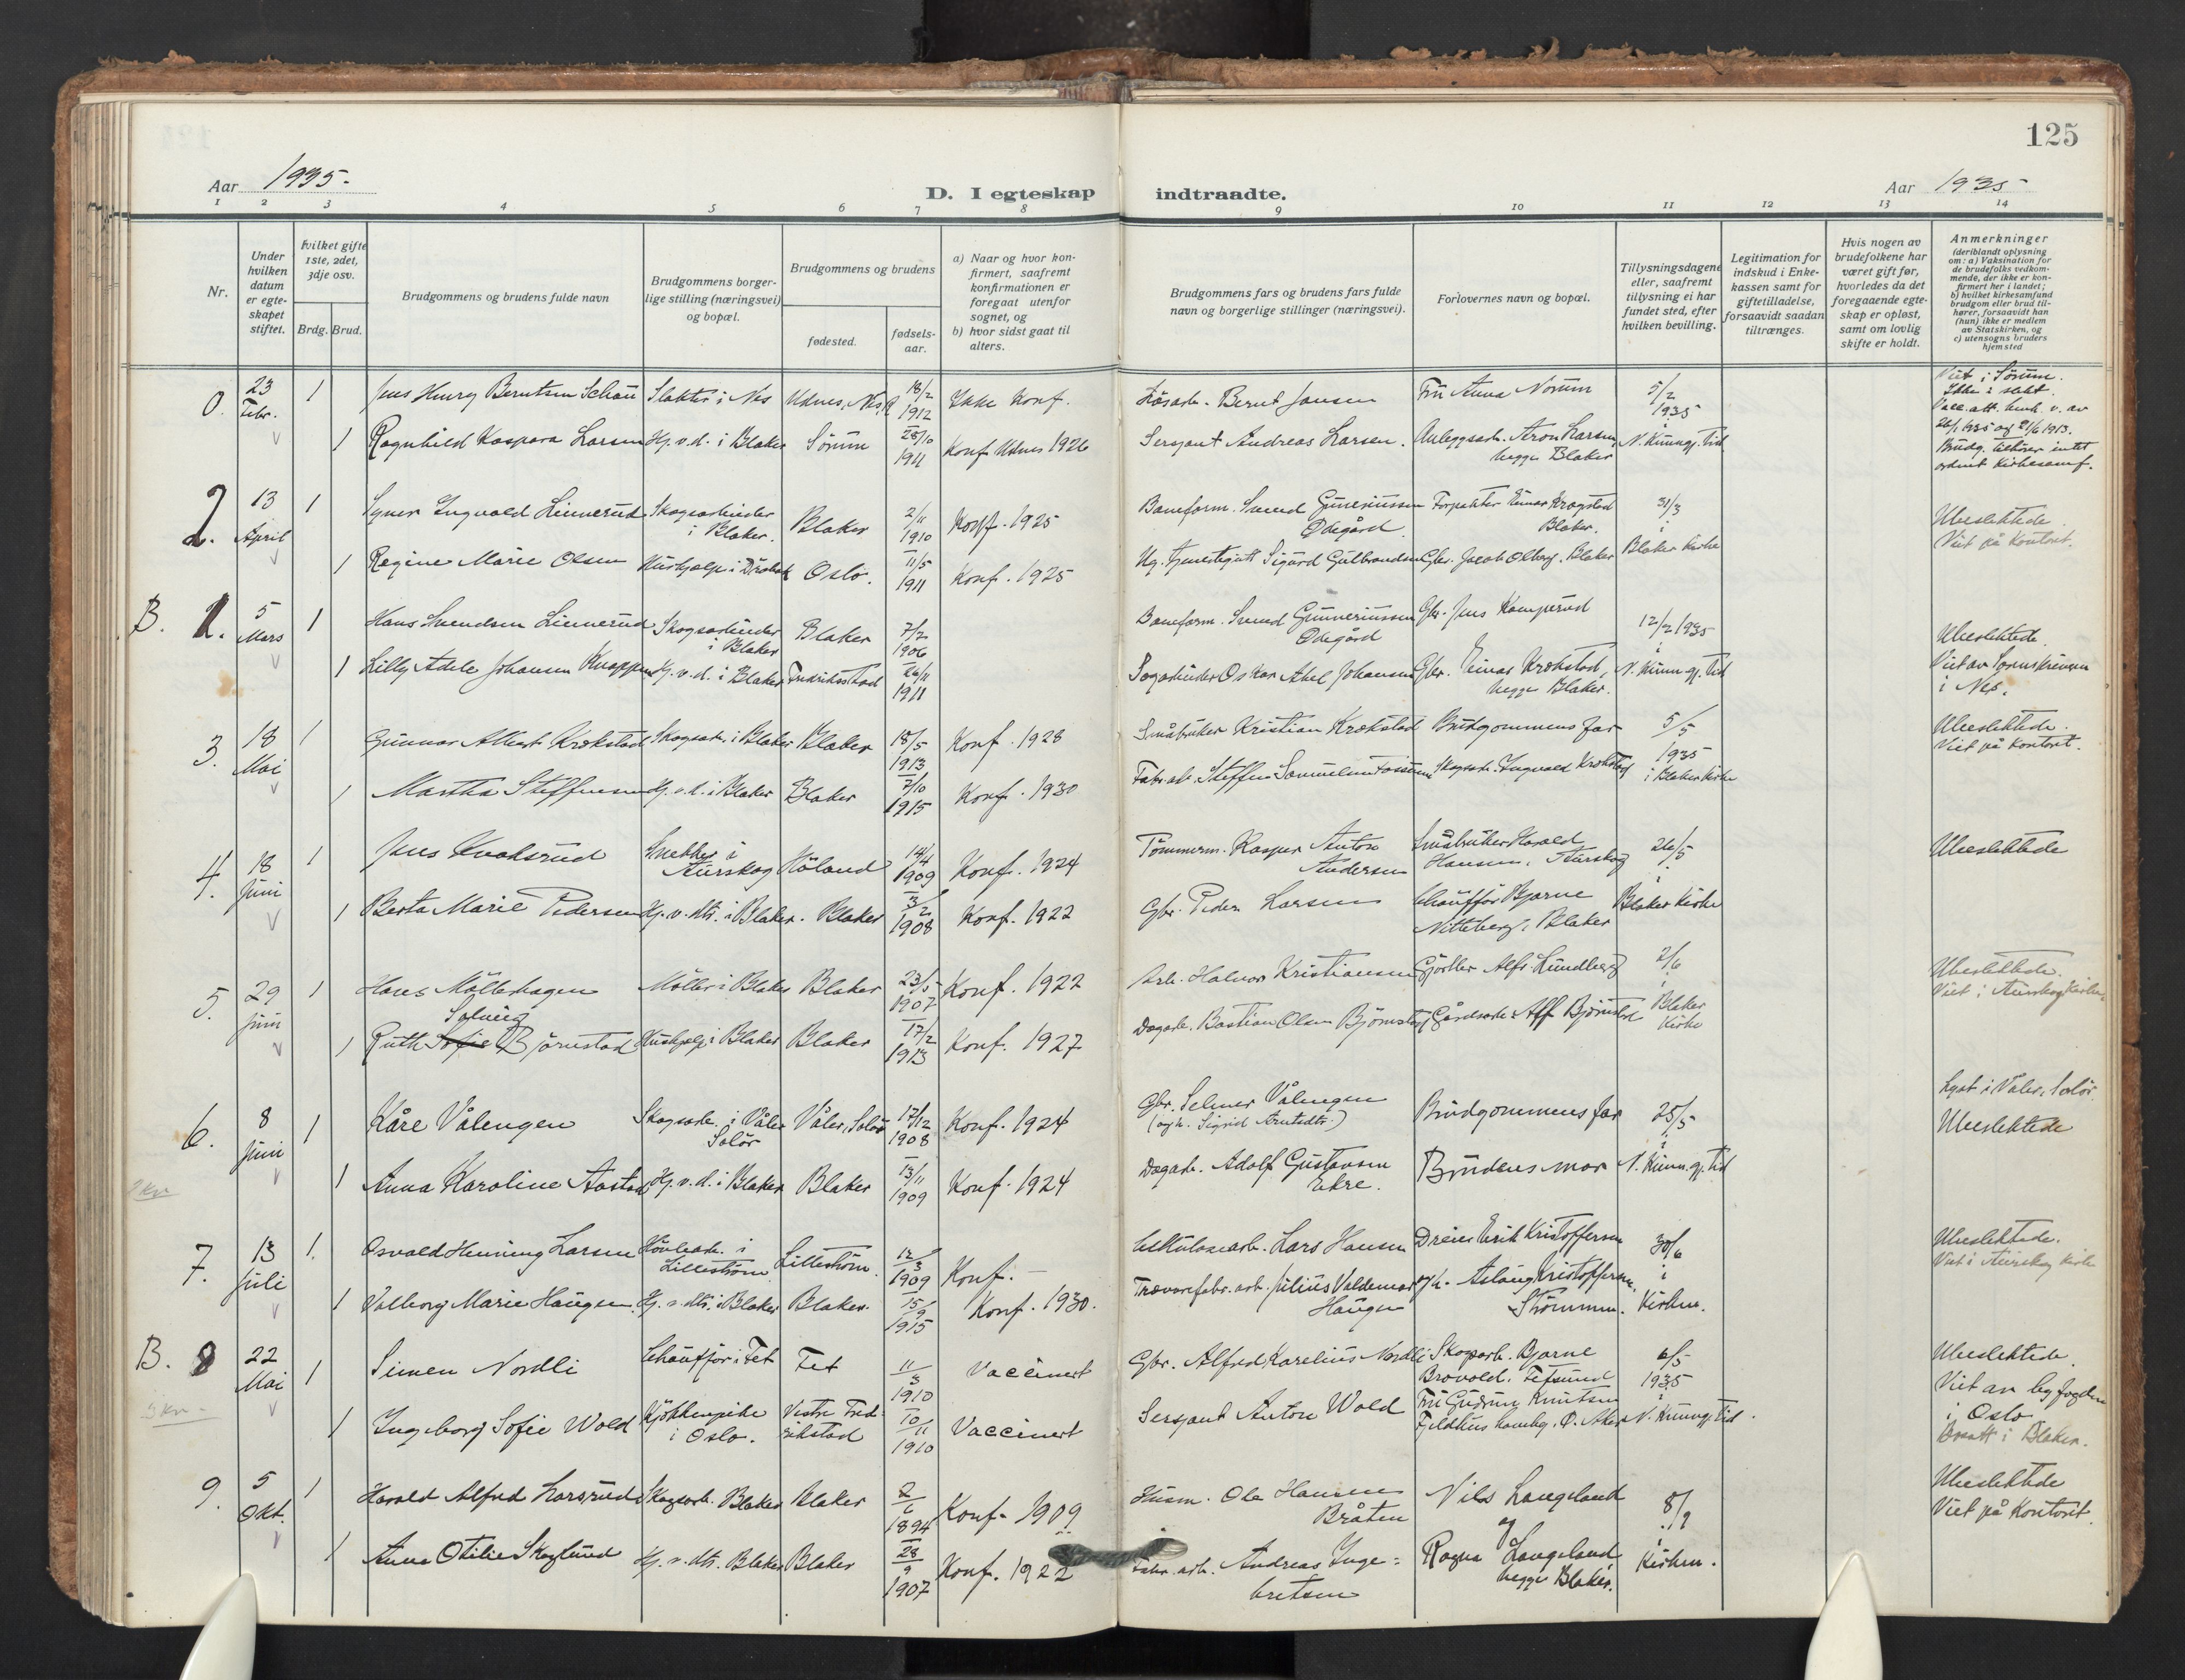 125
Aar 1935.
D. I egteskap indtraadte.
Aar 1935
1 2 3 4 5 6 7 8 9 10 11 12 13 14
Nr.
Under hvilken datum er egteskapet stiftet.
hvilket gifte 1ste, 2det, 3dje osv.
Brdg. Brud.
Brudgommens og brudens fulde navn
Brudgommens borgerlige stilling (næringsvei) og bopæl.
Brudgommens og brudens
fødested.
fødselsaar.
a) Naar og hvor konfirmert, saafremt konfirmationen er foregaat utenfor sognet, og
b) hvor sidst gaat til alters.
Brudgommens fars og brudens fars fulde navn og borgerlige stillinger (næringsvei).
Forlovernes navn og bopæl.
Tillysningsdagene eller, saafremt tillysning ei har fundet sted, efter hvilken bevilling.
Legitimation for indskud i Enkekassen samt for giftetilladelse, forsaavidt saadan tiltrænges.
Hvis nogen av brudefolkene har været gift før, hvorledes da det foregaaende egteskap er opløst, samt om lovlig skifte er holdt.
Anmerkninger
(deriblandt oplysning om: a) Vaksination for de brudefolks vedkommende, der ikke er konfirmert her i landet;
b) hvilket kirkesamfund brudgom eller brud tilhører, forsaavidt han (hun) ikke er medlem av Statskirken, og
c) utensogns bruders hjemsted
0. 23 Febr. 1 Jens Henry Berntsen Schau Slakter i Nes Udnes, Nes R 18/2 1912 Ikke Konf. Løsarb. Bernt Jansen Fru Anna Norum 5/2 1935 Viet i Sørum. Ikke i slekt.
1 Ragnhild Kaspara Larsen Hj.v.d. i Blaker Sørum 28/10 1911 Konf. Udnes 1926 Sersjant Andreas Larsen. Anleggsarb. Aron Larsen, begge Blaker i N. Kunngj. Tid 26/1 1935 og 21/6 1913.
2. 13 April 1 Syver Ingvald Linnerud Skogsarbeider i Blaker. Blaker 2/11 1910 Konf. 1925 Baneform. Svend Gunneriussen Ødegård Forpakter Einar Krogstad Blaker. 31/3 i Ubeslektede.
1 Regine Marie Olsen Hushjelp i Drøbak Oslo. 11/5 1911 Konf. 1925 Ug. tjenestegutt Sigurd Gulbrandsen Gbr. Jacob Olberg, Blaker Blaker Kirke Viet på Kontoret.
B. 1. 5 Mars 1 Hans Svendsen Linnerud Skogsarbeider i Blaker Blaker 7/2 1906 Baneform. Svend Gunneriussen Ødegård Gbr. Jens Kamperud 12/2 1935 i Ubeslektede.
1 Lilly Adele Johansen Knappen Hj.v.d. i Blaker Fredriksstad 26/11 1911 Sagarbeider Oskar Abel Johansen Gbr. Einar Krokstad, begge Blaker. N. Kunngj. Tid Viet av Sorenskriveren i Nes.
3. 18 Mai 1 Gunnar Albert Krokstad Skogsarb. i Blaker Blaker 18/5 1913 Konf. 1928 Småbruker Kristian Krokstad Brudgommens far 5/5 1935 Ubeslektede. Viet på Kontoret.
1 Martha Steffensen Hj.v.d. i Blaker Blaker 7/10 1915 Konf. 1930 Fabr.arb. Steffen Samuelsen Fossum Skogsarb. Ingvald Krokstad i Blaker Kirke
4. 18 Juni 1 Jens Kvaksrud Snekker i Aurskog Høland 14/4 1909 Konf. 1924 Tømmerm. Kasper Anton Andersen Småbruker Harald Hansen, Aurskog 26/5 i Ubeslektede
1 Berta Marie Pedersen Hj.v.dtr. i Blaker. Blaker 3/2 1908 Konf. 1922 Gbr. Peder Larsen Chauffør Bjarne Nitteberg, Blaker Blaker Kirke
5. 29 Juni 1 Hans Møllehagen Møller i Blaker Blaker 23/5 1907 Konf. 1922 Arb. Halvor Kristiansen Gjørtler Alfr. Lundberg 2/6 i Ubeslektede. Viet i Aurskog Kirke.
1 Ruth Sofie Solveig Bjørnestad Hushjelp i Blaker Blaker 17/2 1913 Konf. 1927 Dagarb. Bastian Olsen Bjørnstad Gårdsarb. Alf Bjørnstad Blaker Kirke
6. 8 Juni 1 Kåre Vålengen Skogsarb. i Våler Solør Våler, Solør 17/12 1908 Konf. 1924 Gbr. Selmer Vålengen (og h. Sigrid Arntsdtr.) Brudgommens far 25/5 i Lyst i Våler, Solør. Ubeslektede
2 Kr 1 Anna Karoline Aastad Hj.v.d. i Blaker Blaker 13/11 1909 Konf. 1924 Dagarb. Adolf Gustavsen Ekre. Brudens mor N. Kunn.gj. Tid
7. 13 Juli 1. Osvald Henning Larsen Høvlearb. i Lillestrøm Lillestrøm. 12/3 1909 Konf. – Cellulosearb. Lars Hansen Dreier Erik Kristoffersen 30/6 i Ubeslektede. Viet i Aurskog Kirke
1 Valborg Marie Haugen. Hj.v.dtr. i Blaker Blaker. 15/9 1915 Konf. 1930. Trævarefabr.arb. Julius Valdemar Haugen og h. Aslaug Kristoffersen, Strømmen. Kirken.
B. 8 22 Mai 1 Simen Nordli Chauffør i Fet Fet 11/3 1910 Vaccinert Gbr. Alfred Karelius Nordli Skogsarb. Bjarne Brovold, Fetsund 6/5 1935 i Ubeslektede.
1 Ingeborg Sofie Wold Kjøkkenpike i Oslo. Vestre Fredrikstad 10/11 1910 Vaccinert Sersjant Anton Wold Fru Gudrun Knutsen N. Kunngj. Tid. Viet av byfogden i Oslo. Bosatt i Blaker.
9. 5 Okt. 1 Harald Alfred Larsrud Skogsarb. Blaker Blaker 2/6 1894 Konf. 1909 Husm. Ole Hansen Bråten Nils Langeland og 8/9 i Ubeslektede Viet på Kontoret.
1 Anna Otilie Skoglund Hj.v.dtr. Blaker Blaker 28/9 1907 Konf. 1922 Fabr.arb. Andreas Inge=bretsen Ragna Langeland, begge Blaker. Kirken.